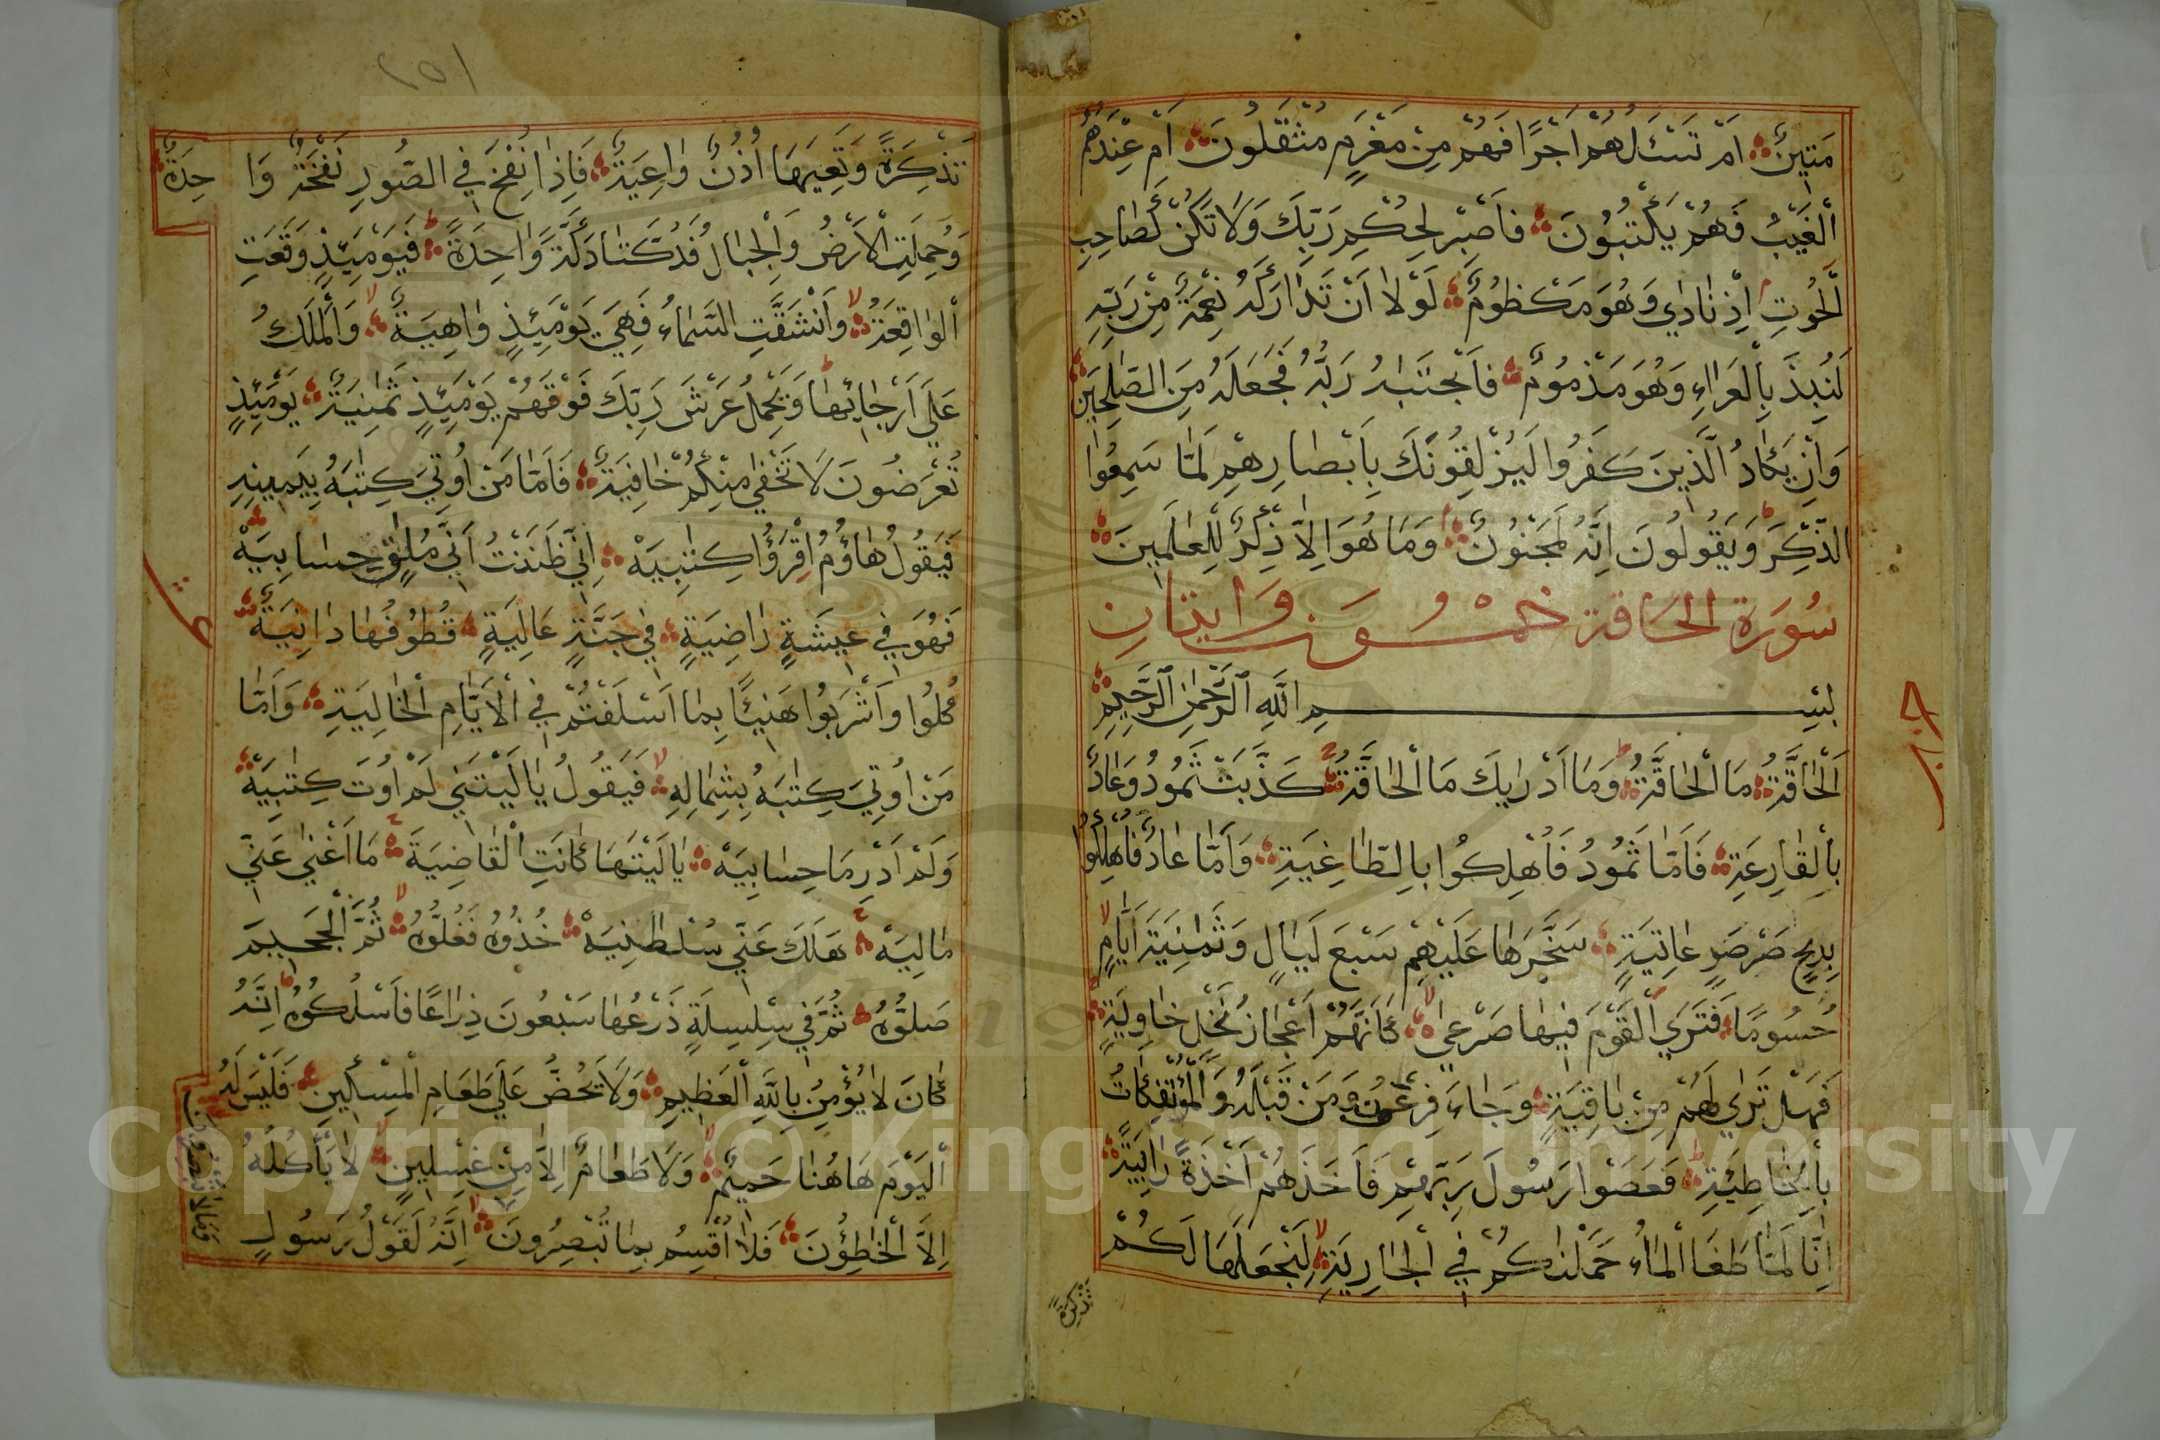 مَتِينٌ اَمْ تَسْئَلُهُمْ اَجْرًا فَهُمْ مِنْ مَغْرَمٍ مُثْقَلُونَ اَمْ عِنْدَهُمُ
الْغَيْبُ فَهُمْ يَكْتُبُونَ فَاصْبِرْ لِحُكْمِ رَبِّكَ وَلَا تَكُنْ كَصَاحِبِ
الْحُوتِ اِذْ نَادٰي وَهُوَ مَكْظُومٌ لَوْلَا اَنْ تَدَارَكَهُ نِعْمَةٌ مِنْ رَبِّهِ
لَنُبِذَ بِالْعَرَاءِ وَهُوَ مَذْمُومٌ فَاجْتَبٰهُ رَبُّهُ فَجَعَلَهُ مِنَ الصّٰلِحِينَ
وَاِنْ يَكَادُ الَّذِينَ كَفَرُوا لَيُزْلِقُونَكَ بِاَبْصَارِهِمْ لَمَّا سَمِعُوا
الذِّكْرَ وَيَقُولُونَ اِنَّهُ لَمَجْنُونٌ وَمَا هُوَ اِلَّا ذِكْرٌ لِلْعٰلَمِينَ
سُورَة الحَاقة خمسُونَ وَايتانِ
بِسْمِ اللّٰهِ الرَّحْمٰنِ الرَّحِيمِ
اَلْحَاقَّةُ مَا الْحَاقَّةُ وَمَا اَدْرٰيكَ مَا الْحَاقَّةُ كَذَّبَتْ ثَمُودُ وَعَادٌ
بِالْقَارِعَةِ فَاَمَّا ثَمُودُ فَاُهْلِكُوا بِالطَّاغِيَةِ وَاَمَّا عَادٌ فَاُهْلِكُوا
بِرِيحٍ صَرْصَرٍ عَاتِيَةٍ سَخَّرَهَا عَلَيْهِمْ سَبْعَ لَيَالٍ وَثَمٰنِيَةَ اَيَّامٍ
حُسُومًا فَتَرَي الْقَوْمَ فِيهَا صَرْعٰي كَاَنَّهُمْ اَعْجَازُ نَخْلٍ خَاوِيَةٍ
فَهَلْ تَرٰي لَهُمْ مِنْ بَاقِيَةٍ وَجَاءَ فِرْعَوْنُ وَمَنْ قَبْلَهُ وَالْمُؤْتَفِكَاتُ
بِالْخَاطِئَةِ فَعَصَوْا رَسُولَ رَبِّهِمْ فَاَخَذَهُمْ اَخْذَةً رَابِيَةً
اِنَّا لَمَّا طَغَا الْمَاءُ حَمَلْنَاكُمْ فِي الْجَارِيَةِ لِنَجْعَلَهَا لَكُمْ
تَذْكِرَةً
١٥٢
تَذْكِرَةً وَتَعِيَهَا اُذُنٌ وَاعِيَةٌ فَاِذَا نُفِخَ فِي الصُّورِ نَفْخَةٌ وَاحِدَةٌ
وَحُمِلَتِ الْاَرْضُ وَالْجِبَالُ فَدُكَّتَا دَكَّةً وَاحِدَةً فَيَوْمَئِذٍ وَقَعَتِ
الْوَاقِعَةُ وَانْشَقَّتِ السَّمَاءُ فَهِيَ يَوْمَئِذٍ وَاهِيَةٌ وَالْمَلَكُ
عَلَي اَرْجَائِهَا وَيَحْمِلُ عَرْشَ رَبِّكَ فَوْقَهُمْ يَوْمَئِذٍ ثَمٰنِيَةٌ يَوْمَئِذٍ
تُعْرَضُونَ لَا تَخْفٰي مِنْكُمْ خَافِيَةٌ فَاَمَّا مَنْ اُوتِيَ كِتٰبَهُ بِيَمِينِهِ
فَيَقُولُ هَاؤُمُ اقْرَؤُا كِتٰبِيَهْ اِنِّي ظَنَنْتُ اَنِّي مُلٰقٍ حِسَابِيَهْ
فَهُوَ فِي عِيشَةٍ رَاضِيَةٍ فِي جَنَّةٍ عَالِيَةٍ قُطُوفُهَا دَانِيَةٌ
كُلُوا وَاشْرَبُوا هَنِيئًا بِمَا اَسْلَفْتُمْ فِي الْاَيَّامِ الْخَالِيَةِ وَاَمَّا
مَنْ اُوتِيَ كِتٰبَهُ بِشِمَالِهِ فَيَقُولُ يَالَيْتَنِي لَمْ اُوتَ كِتٰبِيَهْ
وَلَمْ اَدْرِ مَا حِسَابِيَهْ يَالَيْتَهَا كَانَتِ الْقَاضِيَةَ مَا اَغْنٰي عَنِّي
مَالِيَهْ هَلَكَ عَنِّي سُلْطَانِيَهْ خُذُوهُ فَغُلُّوهُ ثُمَّ الْجَحِيمَ
صَلُّوهُ ثُمَّ فِي سِلْسِلَةٍ ذَرْعُهَا سَبْعُونَ ذِرَاعًا فَاسْلُكُوهُ اِنَّهُ
كَانَ لَا يُؤْمِنُ بِاللّٰهِ الْعَظِيمِ وَلَا يَحُضُّ عَلَي طَعَامِ الْمِسْكِينِ فَلَيْسَ لَهُ
الْيَوْمَ هَاهُنَا حَمِيمٌ وَلَا طَعَامٌ اِلَّا مِنْ غِسْلِينٍ لَا يَاْكُلُهُ
اِلَّا الْخَاطِؤُنَ فَلَا اُقْسِمُ بِمَا تُبْصِرُونَ اِنَّهُ لَقَوْلُ رَسُولٍ
وَمَا لَا تُبْصِرُونَ
Copyright © King Saud University